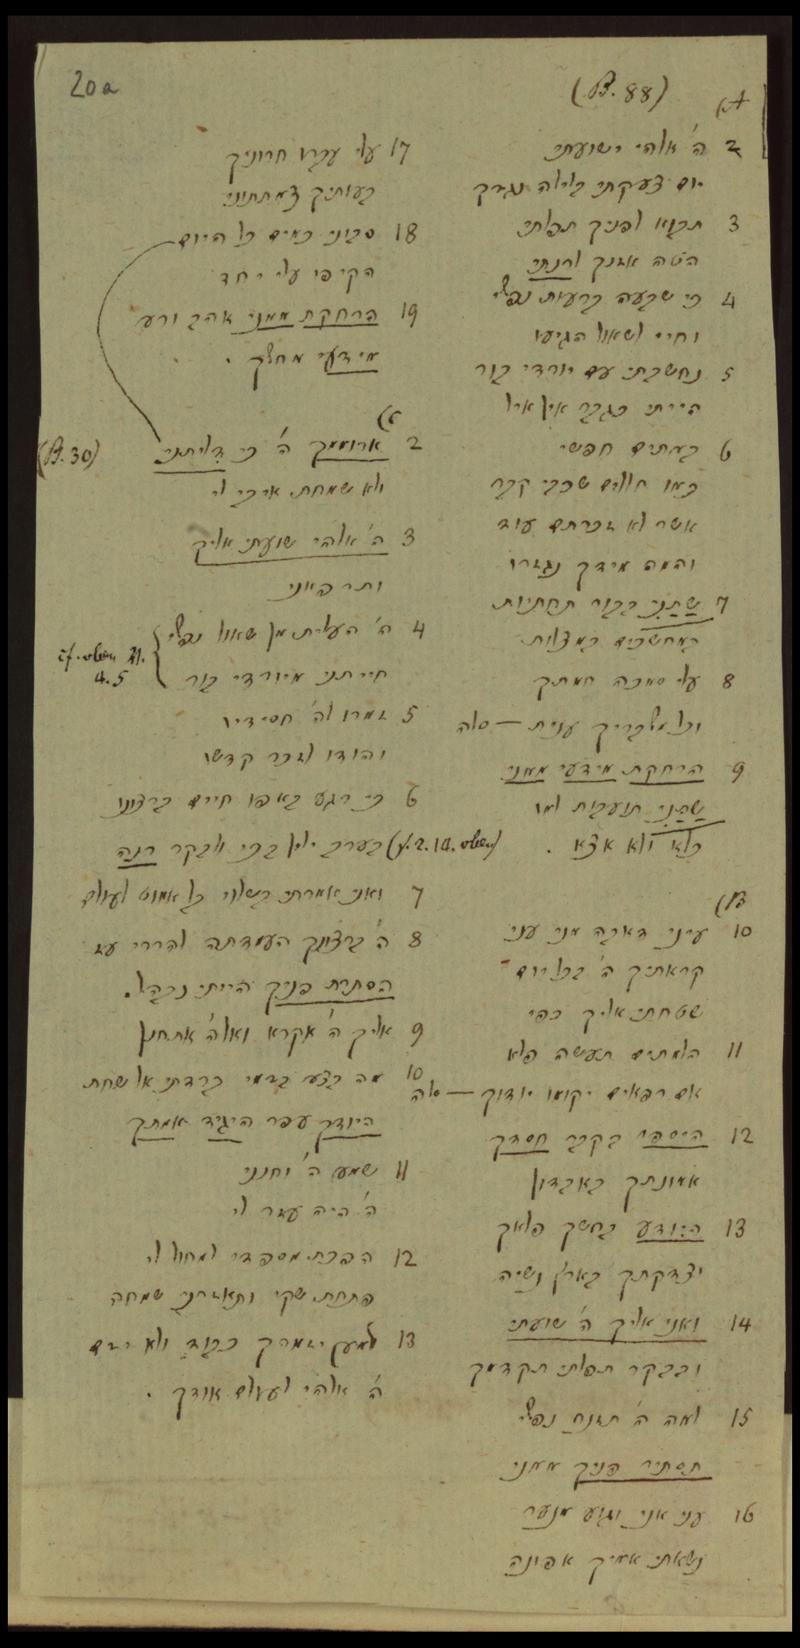 20a
(Ps. 88)
A)
2 ה' אלהי ישועתי
יום צעקתי בלילה נגדך
3 תבוא לפניך תפלתי
הטה אזנך לרנתי
4 כי שבעה ברעות נפשי
וחיי לשאול הגיעו
5 נחשבתי עם יורדי בור
הייתי כגבר אין איל
6 במתים חפשי
כמו חללים שכבי קבר
אשר לא זכרתם עוד
והמה מידך נגזרו
7 שתני בבור תחתיות
במחשכים במצלות
8 עלי סמכה חמתך
וכל משבריך ענית — סלה
9 הרחקת מידעי ממני
שתני תועבות למו
כלא ולא אצא .
B)
10 עיני דאבה מני עני
קראתיך ה' בכל יום
שטחתי אליך כפי
11 הלמתים תעשה פלא
אם רפאים יקומו יודוך — סלה
12 היספר בקבר חסדך
אמונתך באבדון
13 היודע בחשך פלאך
וצדקתך בארץ נשיה
14 ואני אליך ה' שועתי
ובבקר תפלתי תקדמך
15 למה ה' תזנח נפשי
תסתיר פניך ממני
16 עני אני וגוע מנער
נשאתי אמיך אפונה
17 עלי עברו חרוניך
בעותיך צמתתוני
18 סבוני כמים כל היום
הקיפו עלי יחד
19 הרחקת ממני אהב ורע
מידעי מחשך .
(Ps. 30)
2 ארוממך ה' כי דליתני
ולא שמחת איבי לי
3 ה' אלהי שועתי אליך
ותרפאני
4 ה' העלית מן שאול נפשי
חייתני מיורדי בור
cf. oben 88.
4. 5
5 זמרו לה' חסידיו
והודו לזכר קדשו
6 כי רגע באפו חיים ברצונו
בערב ילין בכי ולבקר רנה
(s. 2. 14. oben)
7 ואני אמרתי בשלוי בל אמוט לעולם
8 ה' ברצונך העמדתה להררי עז
הסתרת פניך הייתי נבהל.
9 אליך ה' אקרא ואל ה' אתחנן
10 מה בצע בדמי ברדתי אל שחת
היודך עפר היגיד אמתך
11 שמע ה' וחנני
ה' היה עזר לי
12 הפכת מספדי למחול לי
פתחת שקי ותאזרני שמחה
13 למען יזמרך כבוד ולא ידם
ה' אלהי לעולם אודך .